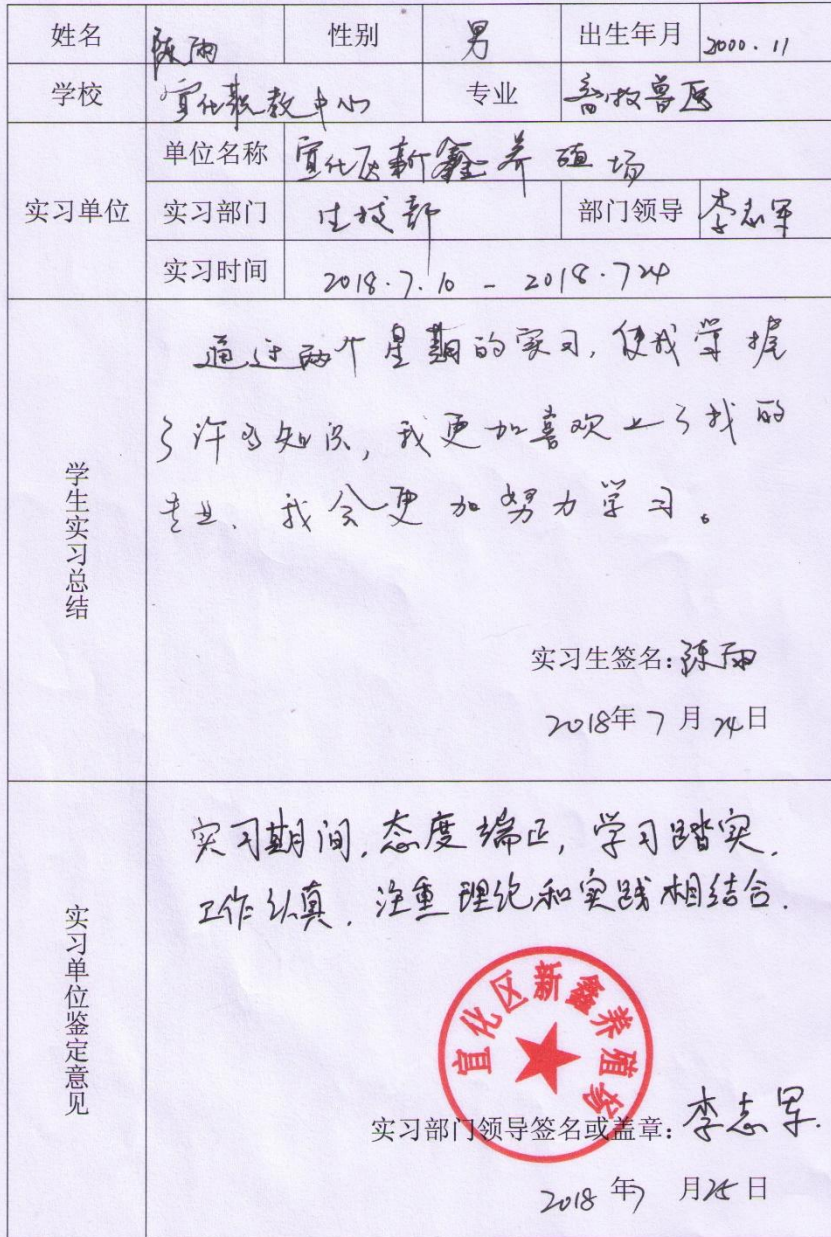 姓名 陈雨 性别 男 出生年月 2000.11
学校 宣化职教中心 专业 畜牧兽医
实习单位 单位名称 宣化区新鑫养殖场
实习部门 生技部 部门领导 李志军
实习时间 2018.7.10 - 2018.724
学生实习总结
通过两个星期的实习,使我掌握
了许多知识,我更加喜欢上了我的
专业、我会更加努力学习。
实习生签名:陈雨
2018年7月24日
实习单位鉴定意见
实习期间,态度端正,学习踏实、
工作认真、注重理论和实践相结合.
宣化区新鑫养殖场
实习部门领导签名或盖章:李志军.
2018年7月25日